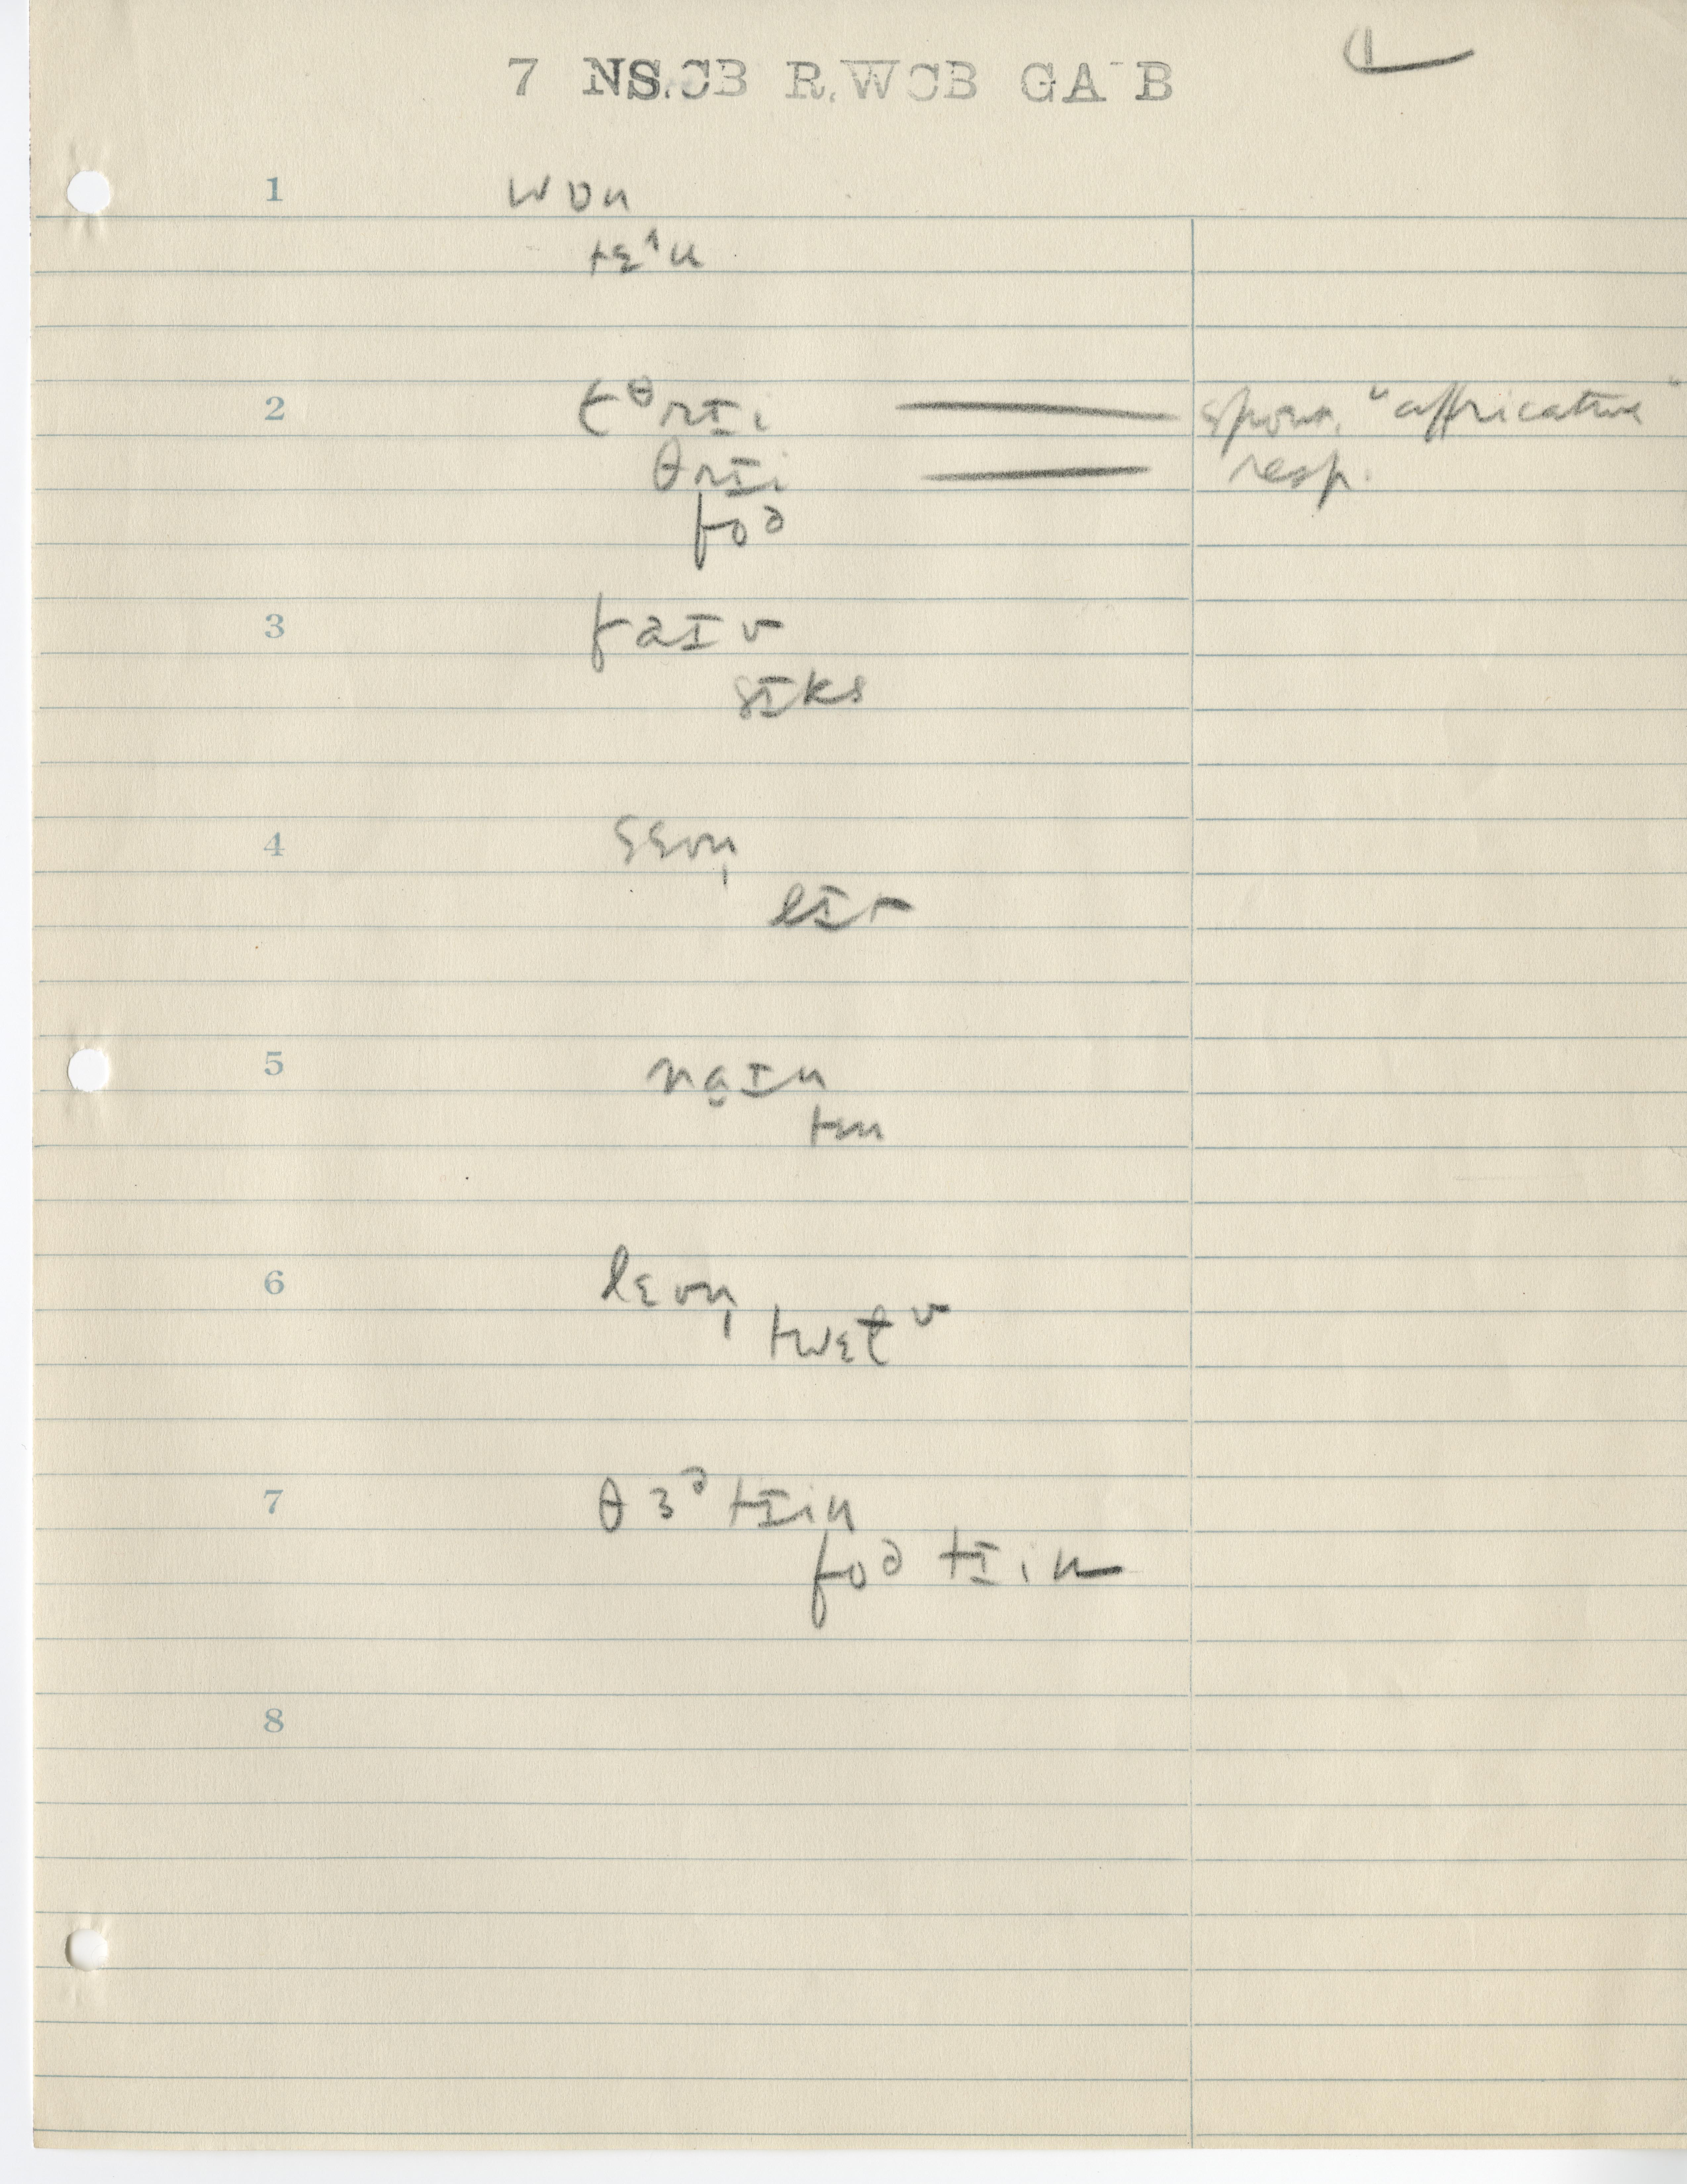 7 NS.CB R.WCB GA B
1 wɒn
tɛ^n
2 t^θrɪi spon. "affricative"
θrɪi resp.
foə
3 faɪv
sɪks
4 sɛvn̩
eɪt
5 naɪn
tɛn
6 lɛvn̩
twɛɫv
7 θɜ^ə tɪin
foə tɪin
8